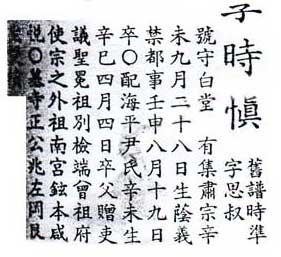 子時愼
舊譜時準
字思叔
號守白堂 有集肅宗辛
未九月二十八日生蔭義
禁都事壬申八月十九日
卒○配海平尹氏辛未生
辛巳四月四日卒父贈吏
議聖冕祖別檢端曾祖府
使宗之外祖南宮鉉本咸
説○墓寺正公兆左岡艮